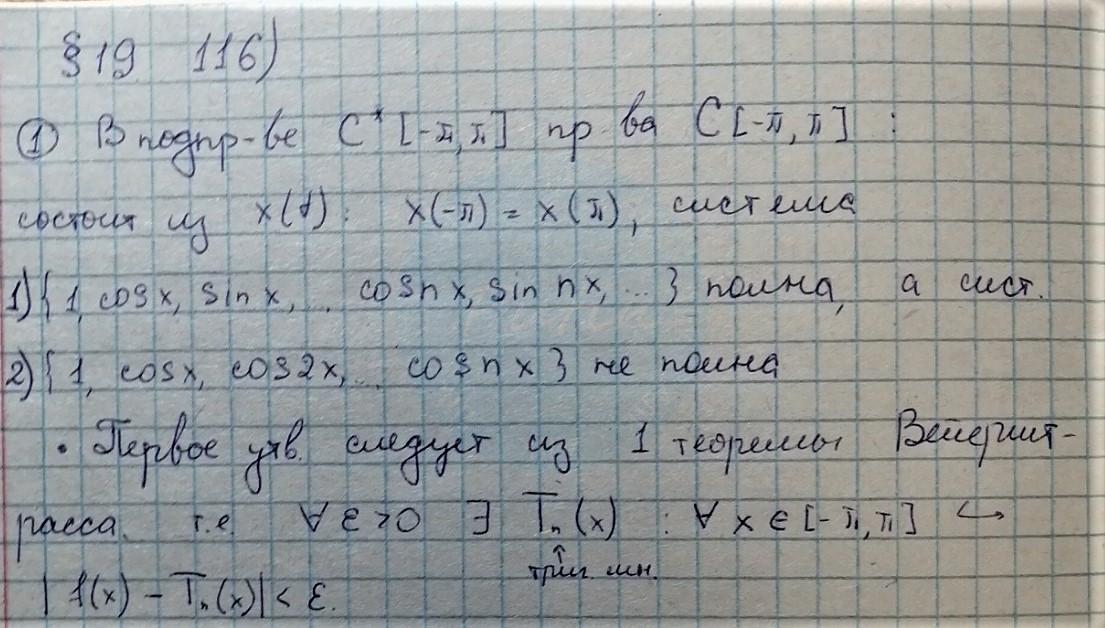 §19 116)
① В подпр-ве C* [-π, π] пр-ва C[-π, π] :
состоит из x(t): x(-π) = x(π), система
1) { 1, cosx, sinx, ... cosnx, sin nx, ... } полна, а сист.
2) { 1, cosx, cos2x, ... cosnx } не полна
• Первое утв. следует из 1 теоремы Вейершт-
расса. т.е ∀ ε>0 ∃ Tₙ(x) : ∀ x ∈ [-π, π] ↪
↑
триг. мн.
| f(x) - Tₙ(x)| < ε.